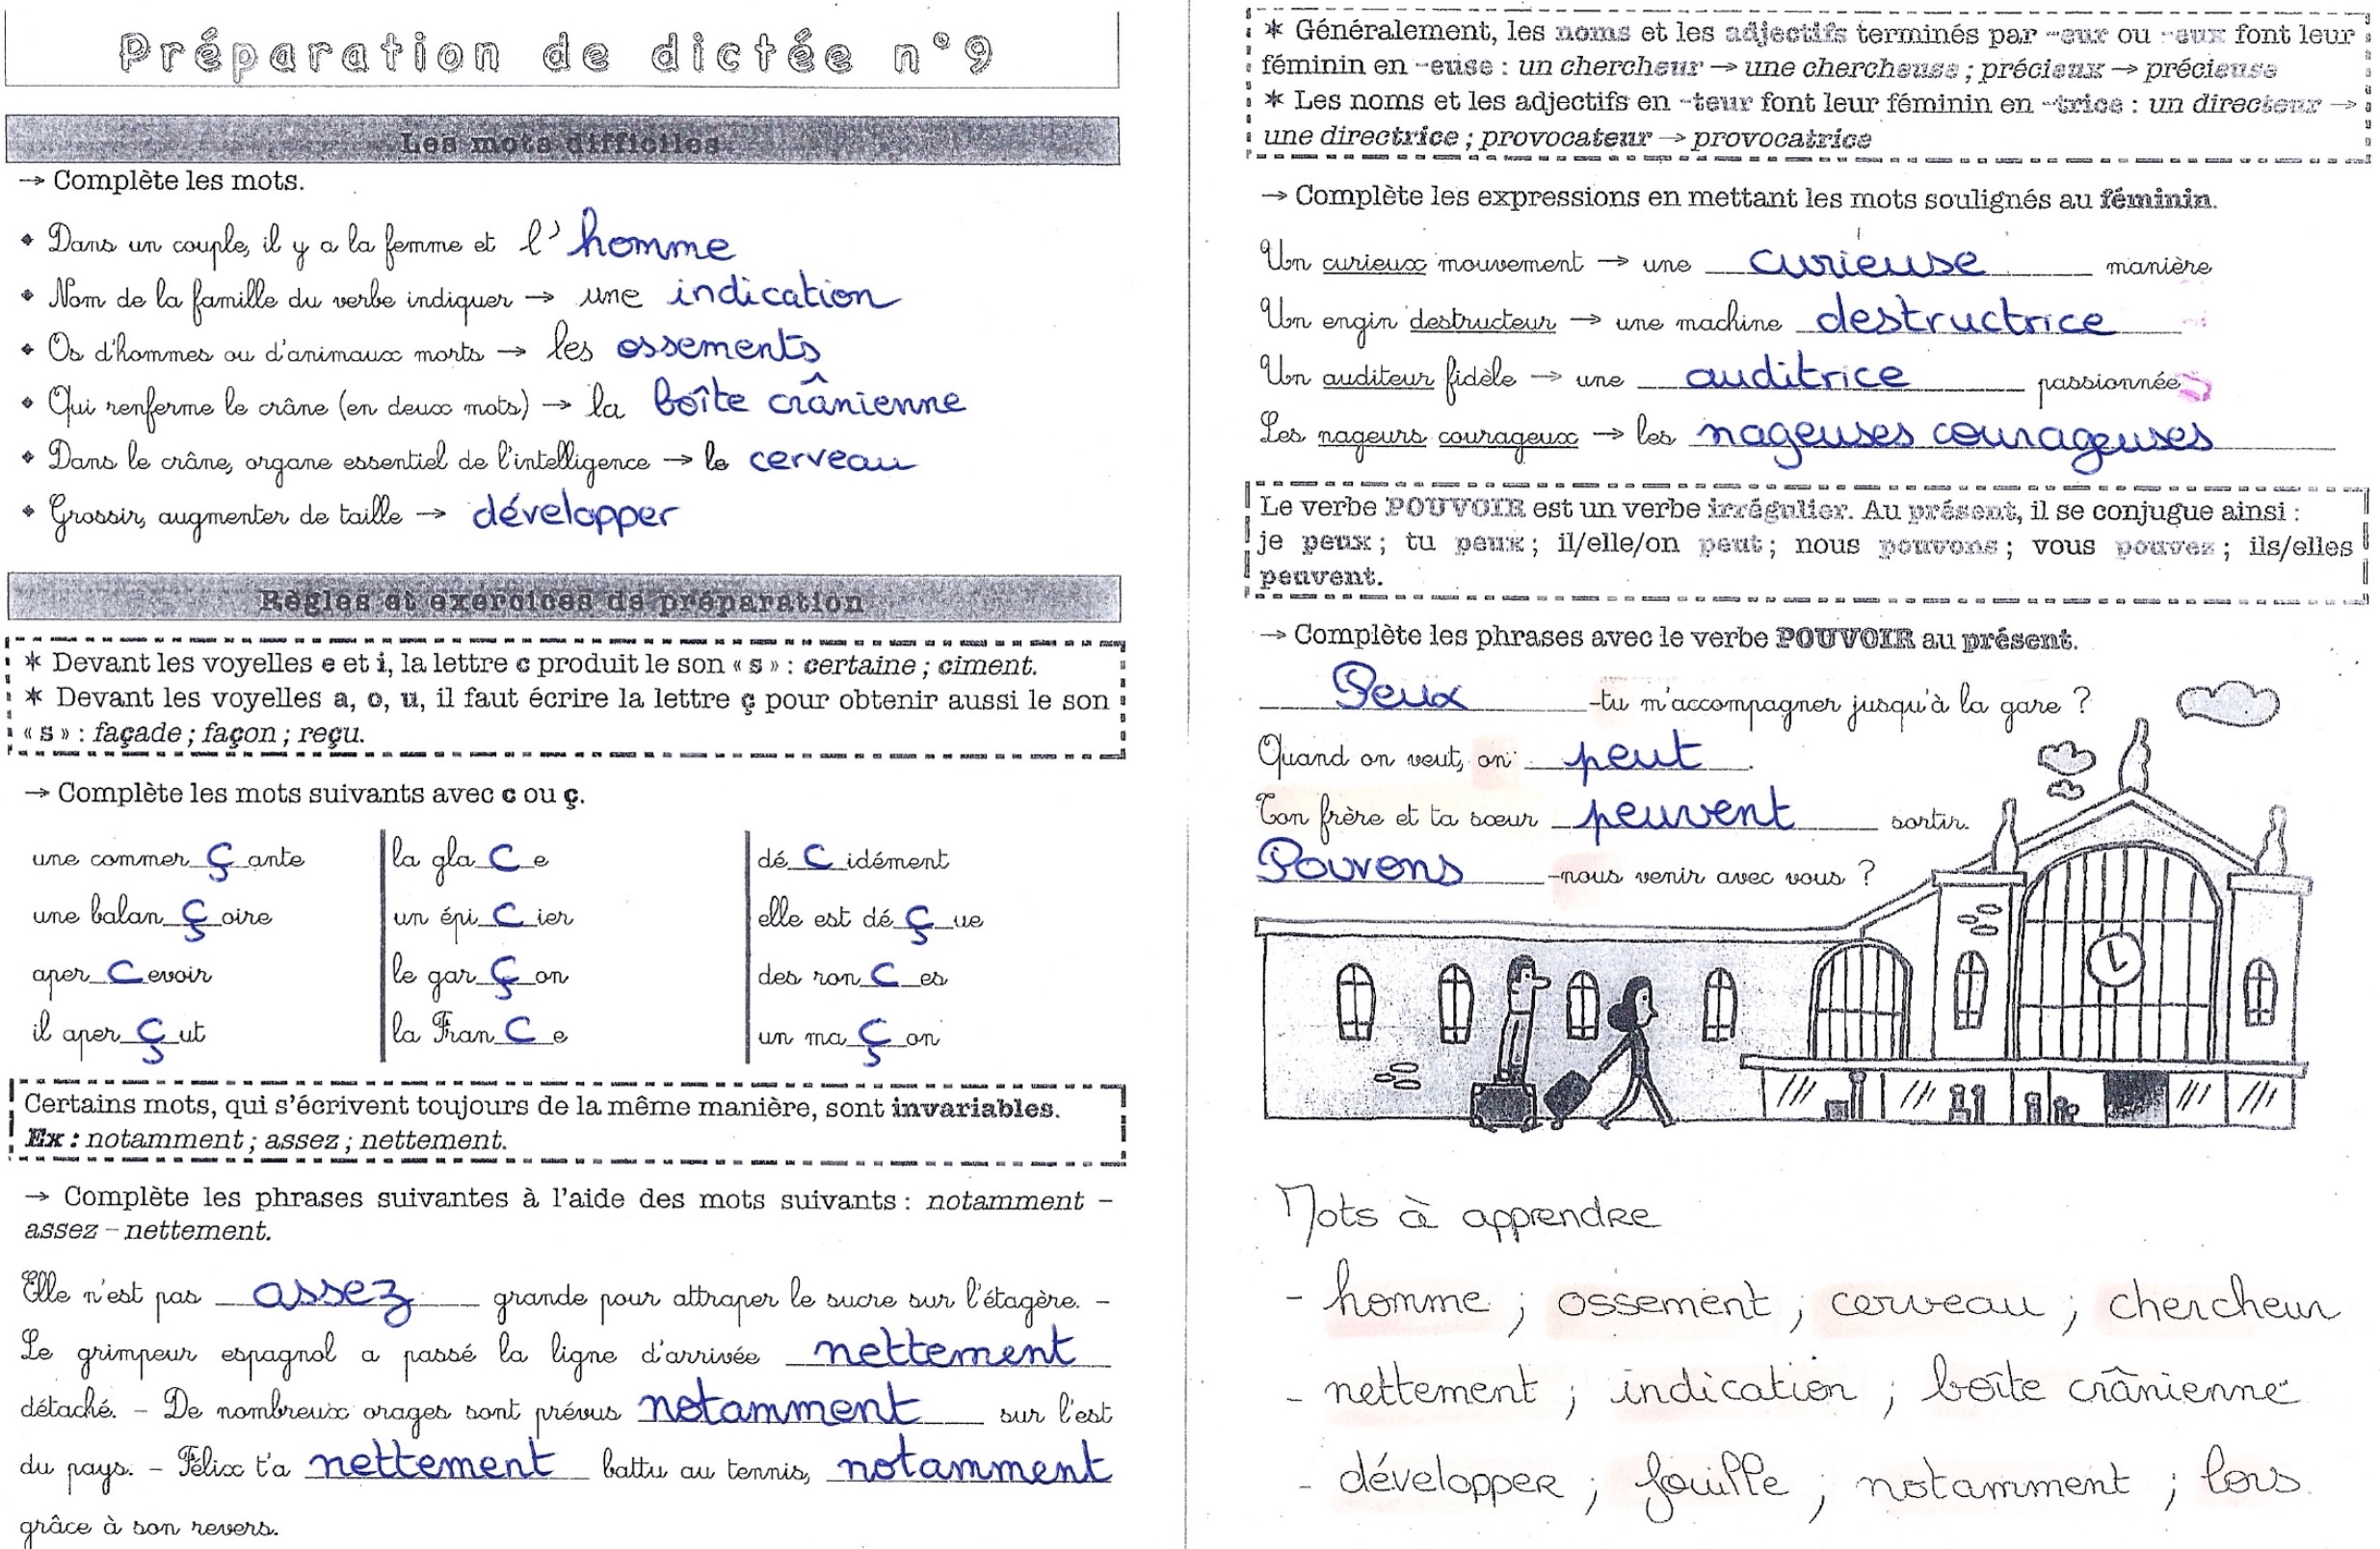 Préparation de dictée n°9
Les mots difficiles
→ Complète les mots.
◆ Dans un couple, il y a la femme et l'homme
◆ Nom de la famille du verbe indiquer → une indication
◆ Os d'hommes ou d'animaux morts → les ossements
◆ Qui renferme le crâne (en deux mots) → la boîte crânienne
◆ Dans le crâne, organe essentiel de l'intelligence → le cerveau
◆ Grossir, augmenter de taille → développer
Règles et exercices de préparation
* Devant les voyelles e et i, la lettre c produit le son « s » : certaine ; ciment.
* Devant les voyelles a, o, u, il faut écrire la lettre ç pour obtenir aussi le son
« s » : façade ; façon ; reçu.
→ Complète les mots suivants avec c ou ç.
une commerçante
une balançoire
apercevoir
il aperçut
la glace
un épicier
le garçon
la France
décidément
elle est déçue
des ronces
un maçon
Certains mots, qui s'écrivent toujours de la même manière, sont invariables.
Ex : notamment ; assez ; nettement.
→ Complète les phrases suivantes à l'aide des mots suivants : notamment –
assez – nettement.
Elle n'est pas assez grande pour attraper le sucre sur l'étagère. –
Le grimpeur espagnol a passé la ligne d'arrivée nettement
détaché. – De nombreux orages sont prévus notamment sur l'est
du pays. – Félix t'a nettement battu au tennis, notamment
grâce à son revers.
* Généralement, les noms et les adjectifs terminés par -eur ou -eux font leur
féminin en -euse : un chercheur → une chercheuse ; précieux → précieuse
* Les noms et les adjectifs en -teur font leur féminin en -trice : un directeur →
une directrice ; provocateur → provocatrice
→ Complète les expressions en mettant les mots soulignés au féminin.
Un curieux mouvement → une curieuse manière
Un engin destructeur → une machine destructrice
Un auditeur fidèle → une auditrice passionnée
Les nageurs courageux → les nageuses courageuses
Le verbe POUVOIR est un verbe irrégulier. Au présent, il se conjugue ainsi :
je peux ; tu peux ; il/elle/on peut ; nous pouvons ; vous pouvez ; ils/elles
peuvent.
→ Complète les phrases avec le verbe POUVOIR au présent.
Peux-tu m'accompagner jusqu'à la gare ?
Quand on veut, on peut.
Ton frère et ta sœur peuvent sortir.
Pouvons-nous venir avec vous ?
Mots à apprendre
- homme ; ossement ; cerveau ; chercheur
- nettement ; indication ; boîte crânienne
- développer ; fouille ; notamment ; lors